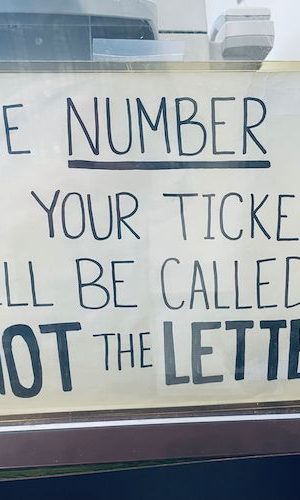 E NUMBER
YOUR TICKE
LL BE CALLED
NOT THE LETTE